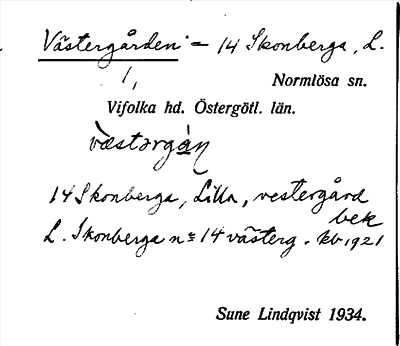 Västergården = 14 Skonberga, L.
1,
Normlösa sn.
Vifolka hd. Östergötl. län.
væstərgàn
14 Skonberga, Lilla, vestergård
bek
L. Skonberga nº 14 västerg. kb 1921
Sune Lindqvist 1934.